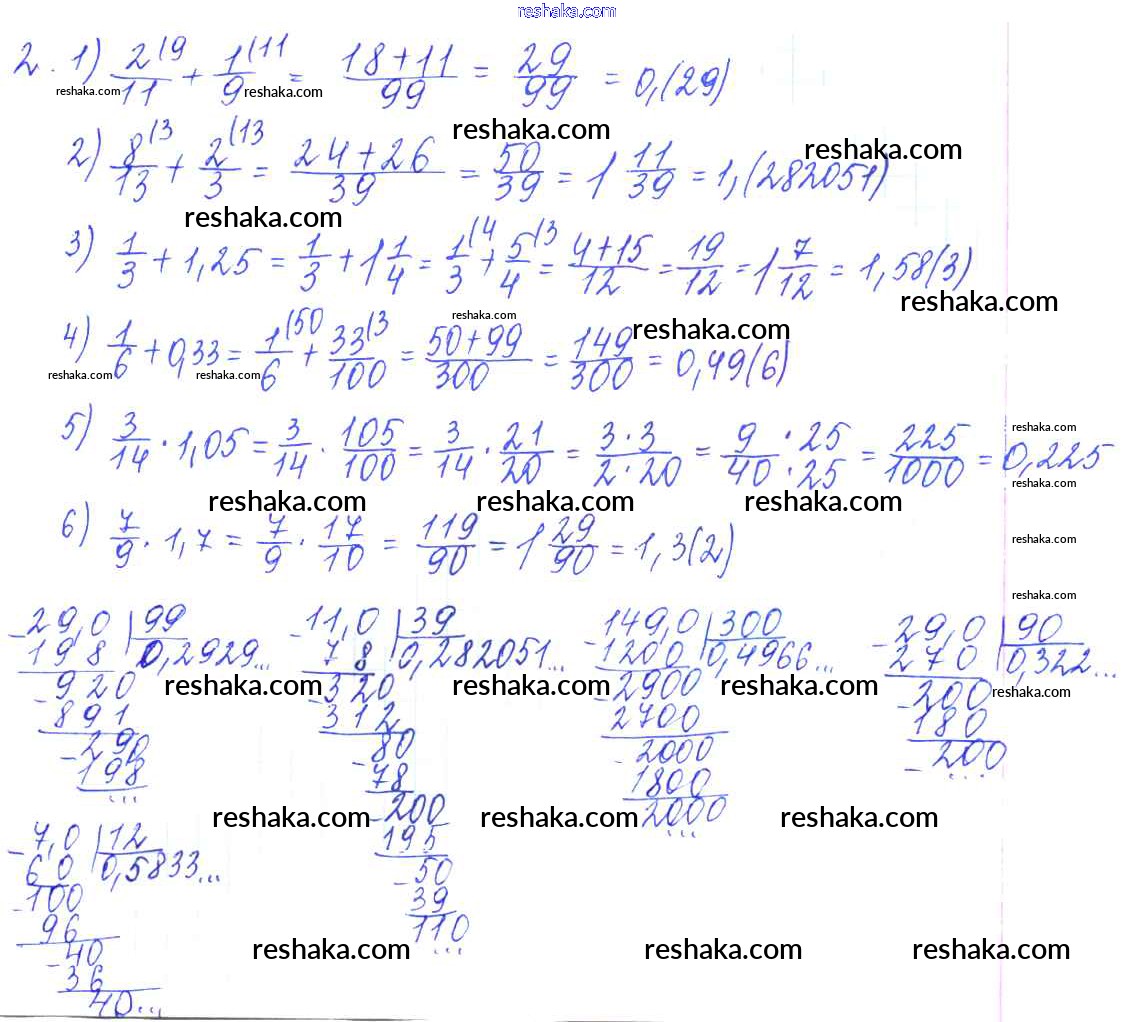 reshaka.com
2. 1) 2(9/11 + 1(11/9 = 18+11/99 = 29/99 = 0,(29)
reshaka.com reshaka.com
reshaka.com reshaka.com
2) 8(3/13 + 2(13/3 = 24+26/39 = 50/39 = 1 11/39 = 1,(282051)
reshaka.com
3) 1/3 + 1,25 = 1/3 + 1 1/4 = 1(4/3 + 5(3/4 = 4+15/12 = 19/12 = 1 7/12 = 1,58(3)
reshaka.com
reshaka.com reshaka.com
4) 1/6 + 0,33 = 1(50/6 + 33(3/100 = 50+99/300 = 149/300 = 0,49(6)
reshaka.com reshaka.com
5) 3/14 · 1,05 = 3/14 · 105/100 = 3/14 · 21/20 = 3·3/2·20 = 9·25/40·25 = 225/1000 = 0,225
reshaka.com
reshaka.com
reshaka.com reshaka.com reshaka.com
6) 7/9 · 1,7 = 7/9 · 17/10 = 119/90 = 1 29/90 = 1,3(2)
reshaka.com
reshaka.com
-29,0 | 99
198 0,2929...
-920
891
-290
198
...
-11,0 | 39
78 0,282051...
-320
312
-80
78
-200
195
-50
39
110
...
-149,0 | 300
1200 0,4966...
-2900
2700
-2000
1800
2000
...
-29,0 | 90
270 0,322...
-200
180
-200
...
reshaka.com reshaka.com reshaka.com reshaka.com
reshaka.com reshaka.com reshaka.com
-7,0 | 12
60 0,5833...
-100
96
-40
36
40...
reshaka.com reshaka.com reshaka.com